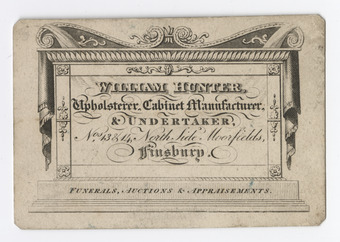 WILLIAM HUNTER,
Upholsterer, Cabinet Manufacturer,
& UNDERTAKER,
Nos. 13 & 14, North Side Moorfields,
Finsbury.
FUNERALS, AUCTIONS & APPRAISEMENTS.